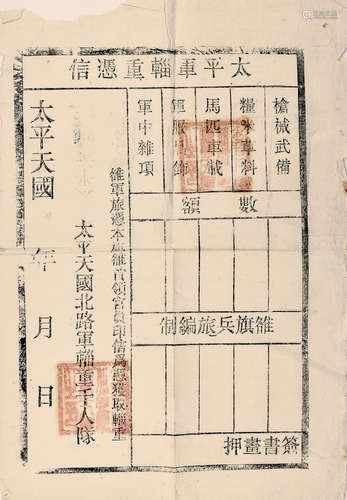 太平軍輜重憑信
槍械武備
糧米草料
馬匹車載
軍服具飾
軍中雜項
數額
雒旗兵旅編制
簽書畫押
雒軍旅憑本旗雒首領官員印信爲憑獲取輜重
太平天國北路軍輜重千人隊
太平天國 年 月 日